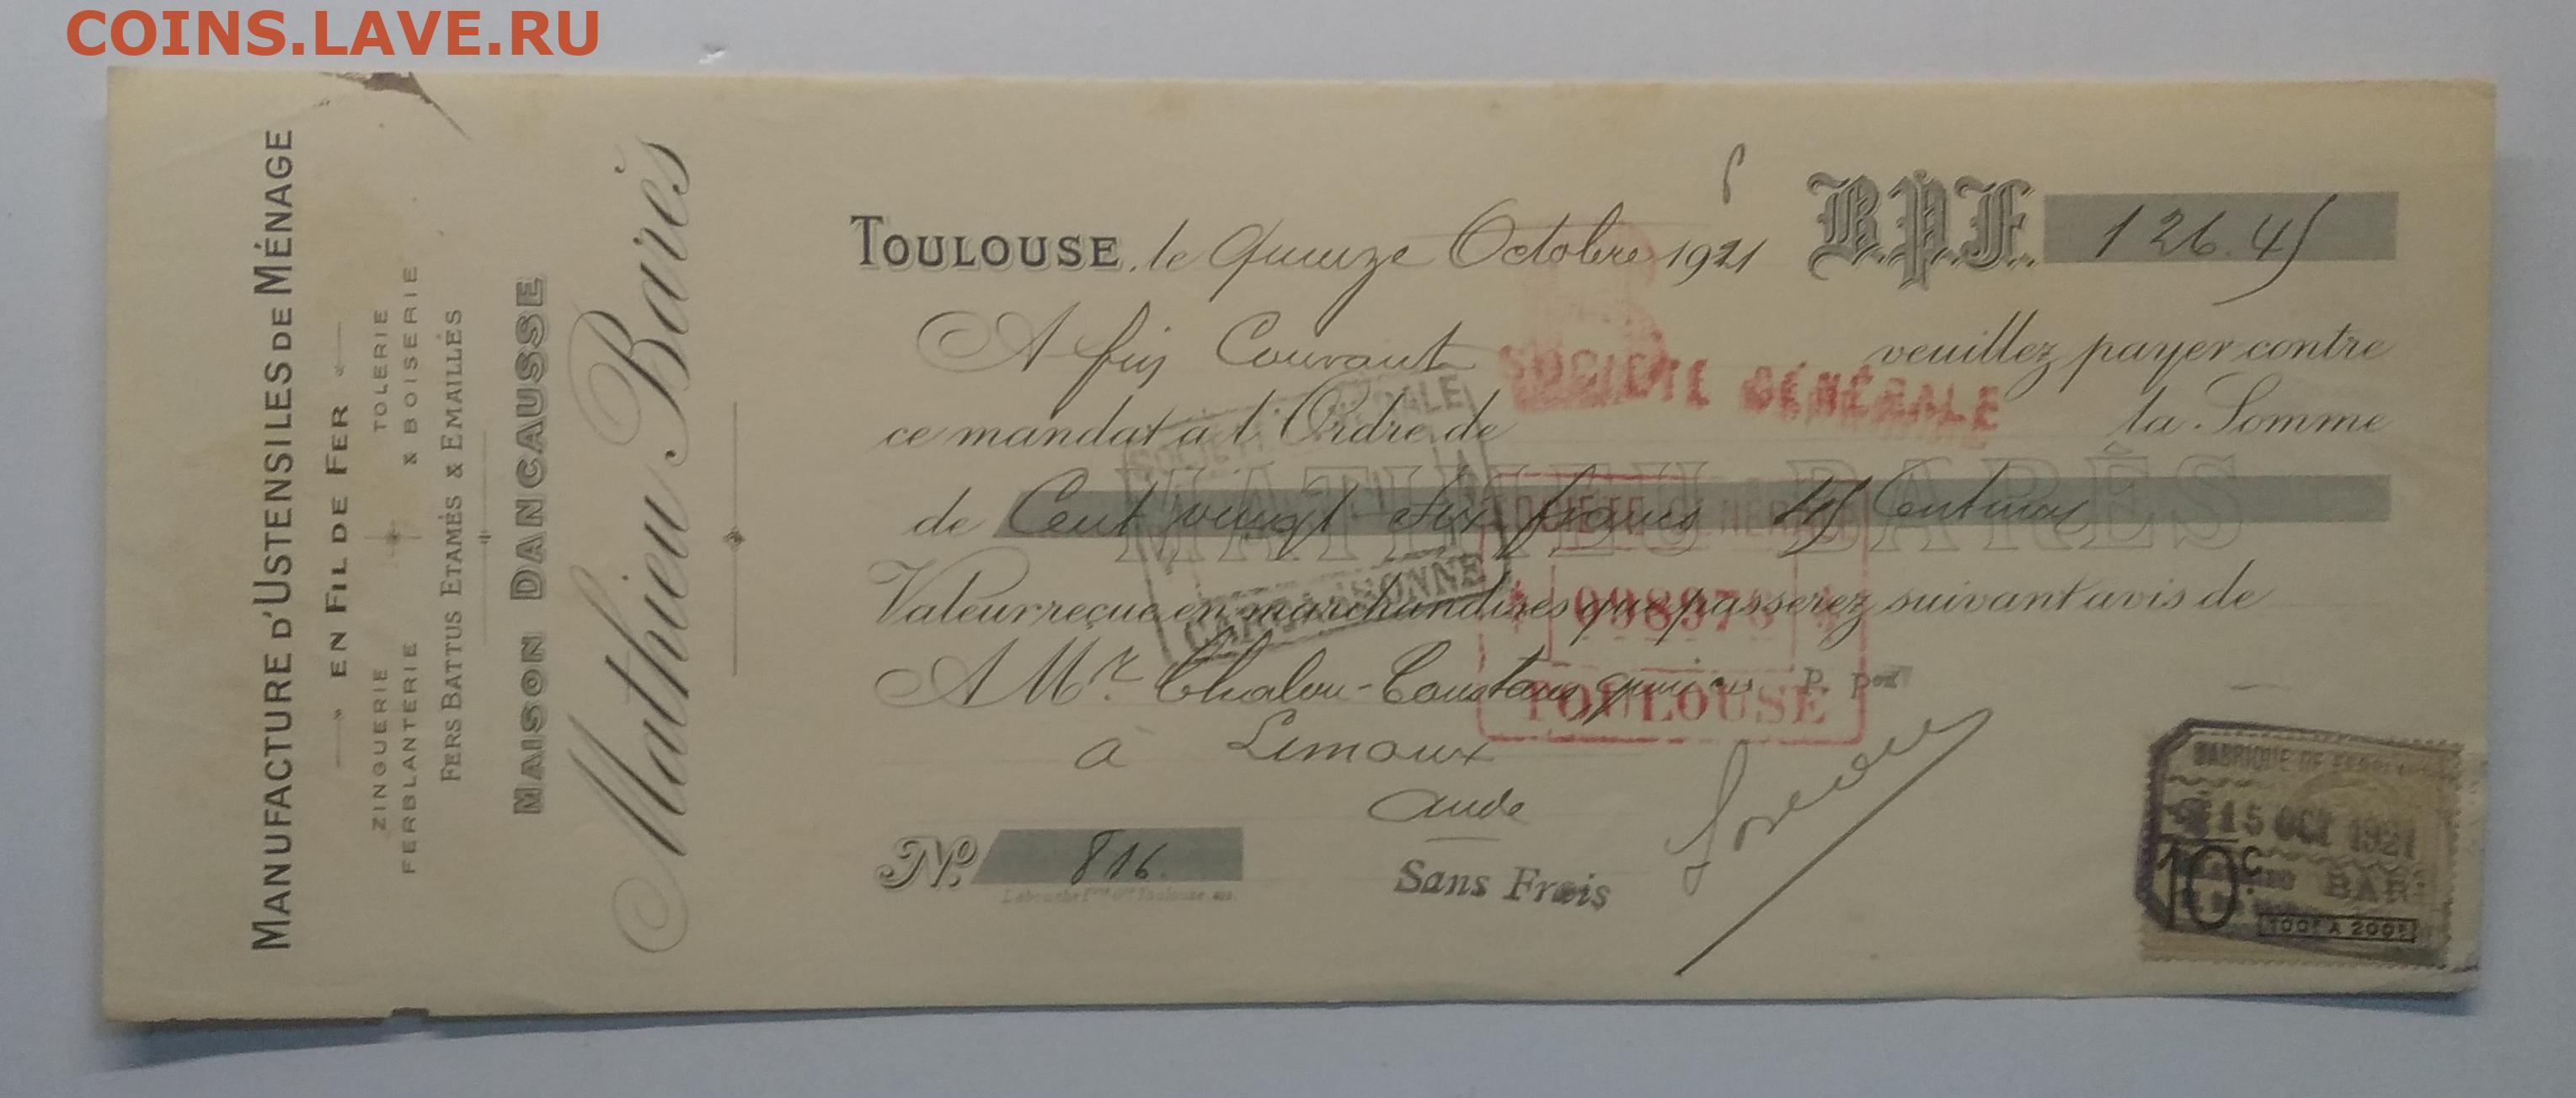 COINS.LAVE.RU
MANUFACTURE D'USTENSILES DE MÉNAGE
EN FIL DE FER
ZINGUERIE TOLERIE
FERBLANTERIE & BOISERIE
FERS BATTUS ETAMÉS & EMAILLÉS
MAISON DANCAUSSE
Mathieu Barès
TOULOUSE, le Quinze Octobre 1921 B.P.F. 126.45
A fin Courant veuillez payer contre
ce mandat à l'Ordre de SOCIÉTÉ GÉNÉRALE la Somme
de Cent vingt six francs 45 Centimes
MATHIEU BARÈS
Valeur reçue en marchandises que passerez suivant avis de
CARCASSONNE
A Mr. Chalou-Coustans
TOULOUSE
à Limoux
Aude
No. 816.
Sans Frais
FABRIQUE DE
15 OCT 1921
BAR
10 c.
100F A 200F